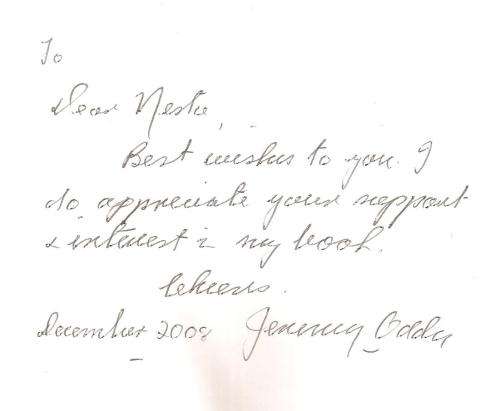 To
Dear Nesta,
Best wishes to you. I
do appreciate your support
& interest in my book.
Cheers.
December 2008 Jeremy Oddy